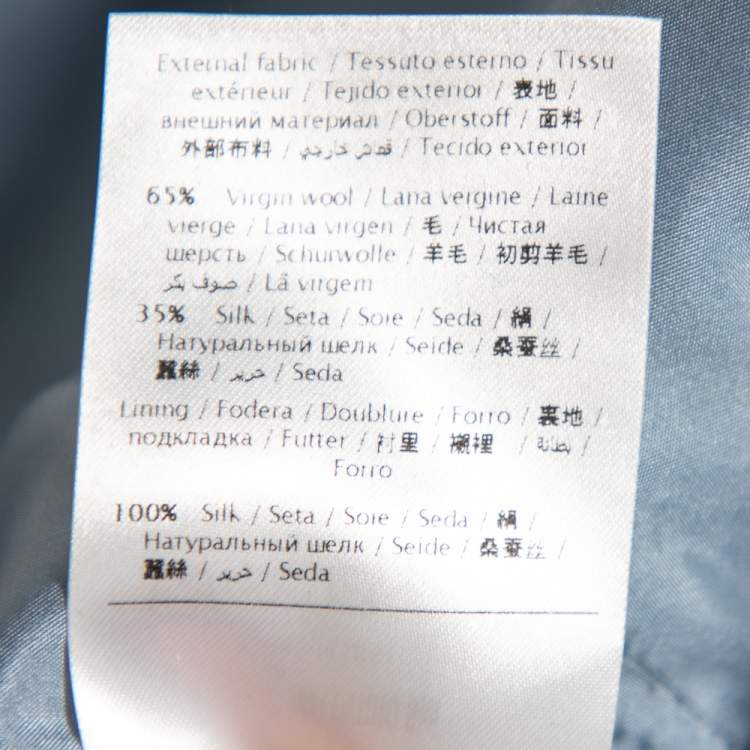 External fabric / Tessuto esterno / Tissu
extérieur / Tejido exterior / 表地 /
внешний материал / Oberstoff / 面料 /
外部布料 / قماش خارجي / Tecido exterior
65% Virgin wool / Lana vergine / Laine
vierge / Lana virgen / 毛 / Чистая
шерсть / Schurwolle / 羊毛 / 初剪羊毛 /
صوف بكر / Lã virgem
35% Silk / Seta / Soie / Seda / 絹 /
Натуральный шелк / Seide / 桑蚕丝 /
蠶絲 / حرير / Seda
Lining / Fodera / Doublure / Forro / 裏地 /
подкладка / Futter / 衬里 / 襯裡 / بطانة /
Forro
100% Silk / Seta / Soie / Seda / 絹 /
Натуральный шелк / Seide / 桑蚕丝 /
蠶絲 / حرير / Seda